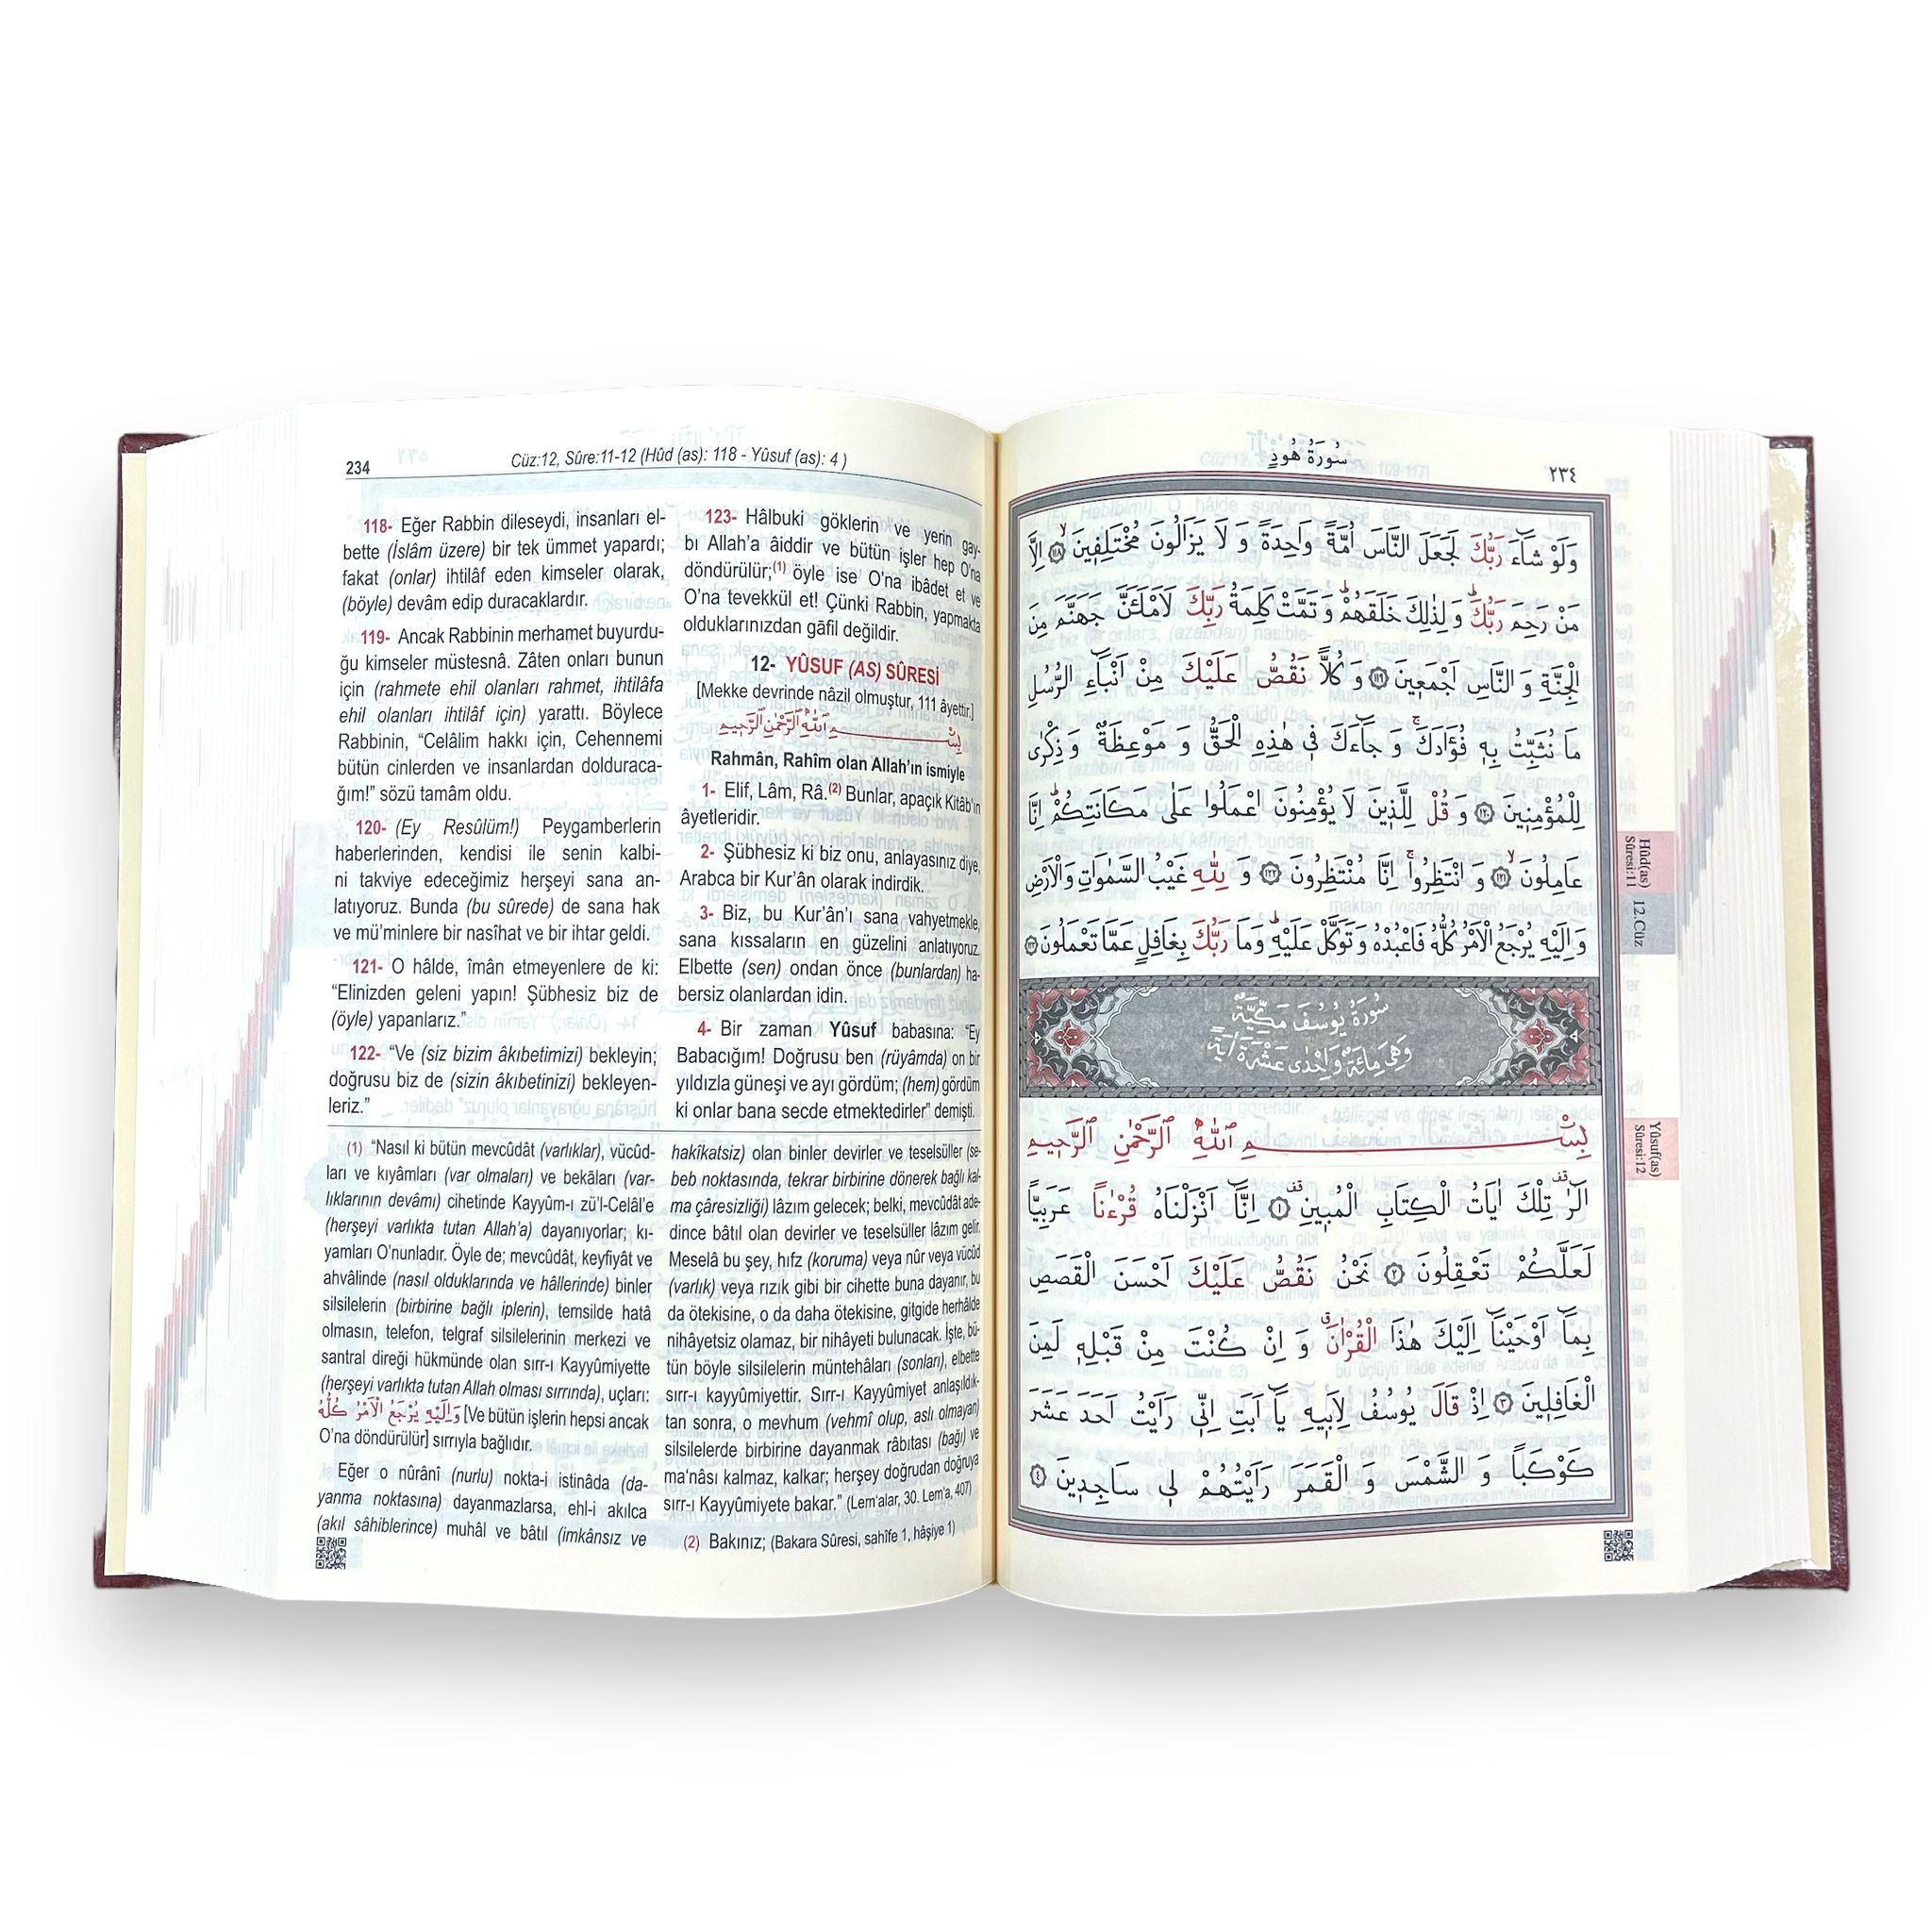 234
Cüz:12, Sûre:11-12 (Hûd (as): 118 - Yûsuf (as): 4 )
118- Eğer Rabbin dileseydi, insanları el-
bette (İslâm üzere) bir tek ümmet yapardı;
fakat (onlar) ihtilâf eden kimseler olarak,
(böyle) devâm edip duracaklardır.
119- Ancak Rabbinin merhamet buyurdu-
ğu kimseler müstesnâ. Zâten onları bunun
için (rahmete ehil olanları rahmet, ihtilâfa
ehil olanları ihtilâf için) yarattı. Böylece
Rabbinin, “Celâlim hakkı için, Cehennemi
bütün cinlerden ve insanlardan dolduraca-
ğım!” sözü tamâm oldu.
120- (Ey Resûlüm!) Peygamberlerin
haberlerinden, kendisi ile senin kalbi-
ni takviye edeceğimiz herşeyi sana an-
latıyoruz. Bunda (bu sûrede) de sana hak
ve mü’minlere bir nasîhat ve bir ihtar geldi.
121- O hâlde, îmân etmeyenlere de ki:
“Elinizden geleni yapın! Şübhesiz biz de
(öyle) yapanlarız.”
122- “Ve (siz bizim âkıbetimizi) bekleyin;
doğrusu biz de (sizin âkıbetinizi) bekleyen-
leriz.”
123- Hâlbuki göklerin ve yerin gay-
bı Allah’a âiddir ve bütün işler hep O’na
döndürülür;(1) öyle ise O’na ibâdet et ve
O’na tevekkül et! Çünki Rabbin, yapmakta
olduklarınızdan gāfil değildir.
12- YÛSUF (AS) SÛRESİ
[Mekke devrinde nâzil olmuştur, 111 âyettir.]
بِسْمِ اللّٰهِ الرَّحْمٰنِ الرَّحِيمِ
Rahmân, Rahîm olan Allah’ın ismiyle
1- Elif, Lâm, Râ.(2) Bunlar, apaçık Kitâb’ın
âyetleridir.
2- Şübhesiz ki biz onu, anlayasınız diye,
Arabca bir Kur’ân olarak indirdik.
3- Biz, bu Kur’ân’ı sana vahyetmekle,
sana kıssaların en güzelini anlatıyoruz.
Elbette (sen) ondan önce (bunlardan) ha-
bersiz olanlardan idin.
4- Bir zaman Yûsuf babasına: “Ey
Babacığım! Doğrusu ben (rüyâmda) on bir
yıldızla güneşi ve ayı gördüm; (hem) gördüm
ki onlar bana secde etmektedirler” demişti.
(1) “Nasıl ki bütün mevcûdât (varlıklar), vücûd-
ları ve kıyâmları (var olmaları) ve bekāları (var-
lıklarının devâmı) cihetinde Kayyûm-ı zü’l-Celâl’e
(herşeyi varlıkta tutan Allah’a) dayanıyorlar; kı-
yamları O’nunladır. Öyle de; mevcûdât, keyfiyât ve
ahvâlinde (nasıl olduklarında ve hâllerinde) binler
silsilelerin (birbirine bağlı iplerin), temsilde hatâ
olmasın, telefon, telgraf silsilelerinin merkezi ve
santral direği hükmünde olan sırr-ı Kayyûmiyette
(herşeyi varlıkta tutan Allah olması sırrında), uçları:
وَاِلَيْهِ يُرْجَعُ الْاَمْرُ كُلُّهُ [Ve bütün işlerin hepsi ancak
O’na döndürülür] sırrıyla bağlıdır.
Eğer o nûrânî (nurlu) nokta-i istinâda (da-
yanma noktasına) dayanmazlarsa, ehl-i akılca
(akıl sâhiblerince) muhâl ve bâtıl (imkânsız ve
hakîkatsiz) olan binler devirler ve teselsüller (se-
beb noktasında, tekrar birbirine dönerek bağlı kal-
ma çâresizliği) lâzım gelecek; belki, mevcûdât ade-
dince bâtıl olan devirler ve teselsüller lâzım gelir.
Meselâ bu şey, hıfz (koruma) veya nûr veya vücûd
(varlık) veya rızık gibi bir cihette buna dayanır, bu
da ötekisine, o da daha ötekisine, gitgide herhâlde
nihâyetsiz olamaz, bir nihâyeti bulunacak. İşte, bü-
tün böyle silsilelerin müntehâları (sonları), elbette
sırr-ı kayyûmiyettir. Sırr-ı Kayyûmiyet anlaşıldık-
tan sonra, o mevhum (vehmî olup, aslı olmayan)
silsilelerde birbirine dayanmak râbıtası (bağı) ve
ma’nâsı kalmaz, kalkar; herşey doğrudan doğruya
sırr-ı Kayyûmiyete bakar.” (Lem’alar, 30. Lem’a, 407)
(2) Bakınız; (Bakara Sûresi, sahîfe 1, hâşiye 1)
سُورَةُ هُودٍ
٢٣٤
وَلَوْ شَٓاءَ رَبُّكَ لَجَعَلَ النَّاسَ اُمَّةً وَاحِدَةً وَ لَا يَزَالُونَ مُخْتَلِفِينَۙ ﴿١١٨﴾ اِلَّا
مَنْ رَحِمَ رَبُّكَۜ وَ لِذٰلِكَ خَلَقَهُمْۜ وَ تَمَّتْ كَلِمَةُ رَبِّكَ لَاَمْلَـَٔنَّ جَهَنَّمَ مِنَ
الْجِنَّةِ وَ النَّاسِ اَجْمَعِينَ ﴿١١٩﴾ وَ كُلًّا نَقُصُّ عَلَيْكَ مِنْ اَنْبَٓاءِ الرُّسُلِ
مَا نُثَبِّتُ بِهِ فُؤَادَكَۚ وَ جَٓاءَكَ فِي هٰذِهِ الْحَقُّ وَ مَوْعِظَةٌ وَ ذِكْرٰى
لِلْمُؤْمِنِينَ ﴿١٢٠﴾ وَ قُلْ لِلَّذِينَ لَا يُؤْمِنُونَ اعْمَلُوا عَلٰى مَكَانَتِكُمْۜ اِنَّا
عَامِلُونَۙ ﴿١٢١﴾ وَ انْتَظِرُواۚ اِنَّا مُنْتَظِرُونَ ﴿١٢٢﴾ وَ لِلّٰهِ غَيْبُ السَّمٰوَاتِ وَالْاَرْضِ
وَ اِلَيْهِ يُرْجَعُ الْاَمْرُ كُلُّهُ فَاعْبُدْهُ وَ تَوَكَّلْ عَلَيْهِۜ وَمَا رَبُّكَ بِغَافِلٍ عَمَّا تَعْمَلُونَ ﴿١٢٣﴾
سُورَةُ يُوسُفَ مَكِّيَّةٌ
وَهِيَ مِائَةٌ وَ اِحْدٰى عَشْرَةَ اٰيَةً
بِسْمِ اللّٰهِ الرَّحْمٰنِ الرَّحِيمِ
الٓرٰ۠ تِلْكَ اٰيَاتُ الْكِتَابِ الْمُبِينِ۠ ﴿١﴾ اِنَّٓا اَنْزَلْنَاهُ قُرْءٰناً عَرَبِيًّا
لَعَلَّكُمْ تَعْقِلُونَ ﴿٢﴾ نَحْنُ نَقُصُّ عَلَيْكَ اَحْسَنَ الْقَصَصِ
بِمَٓا اَوْحَيْنَٓا اِلَيْكَ هٰذَا الْقُرْاٰنَۗ وَ اِنْ كُنْتَ مِنْ قَبْلِهِ لَمِنَ
الْغَافِلِينَ ﴿٣﴾ اِذْ قَالَ يُوسُفُ لِاَبِيهِ يَٓا اَبَتِ اِنِّي رَاَيْتُ اَحَدَ عَشَرَ
كَوْكَبًا وَ الشَّمْسَ وَ الْقَمَرَ رَاَيْتُهُمْ لِي سَاجِدِينَ ﴿٤﴾
Hûd(as)
Sûresi:11
12.Cüz
Yûsuf(as)
Sûresi:12